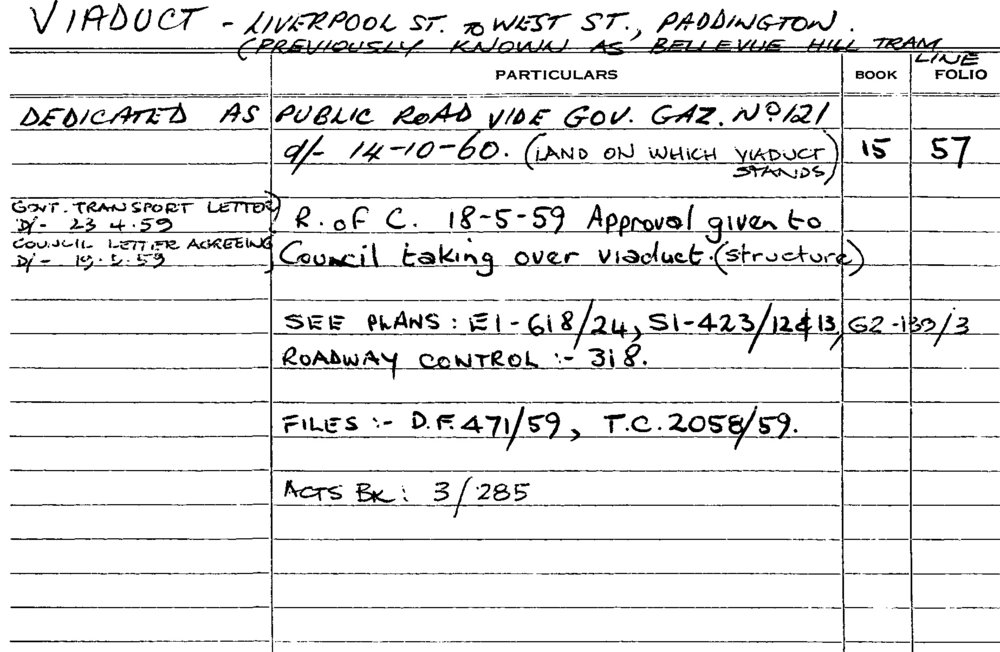 VIADUCT - LIVERPOOL ST. TO WEST ST., PADDINGTON.
(PREVIOUSLY KNOWN AS BELLEVUE HILL TRAM
LINE
PARTICULARS BOOK FOLIO
DEDICATED AS PUBLIC ROAD VIDE GOV. GAZ. No 121
d/- 14-10-60. (LAND ON WHICH VIADUCT 15 57
STANDS)
GOVT. TRANSPORT LETTER)
D/- 23.4.59
R. of C. 18-5-59 Approval given to
COUNCIL LETTER AGREEING
D/- 59
Council taking over viaduct. (structure)
SEE PLANS: E1-618/24, S1-423/12&13, G2-133/3
ROADWAY CONTROL :- 318.
FILES :- D.F. 471/59, T.C. 2058/59.
ACTS BK: 3/285